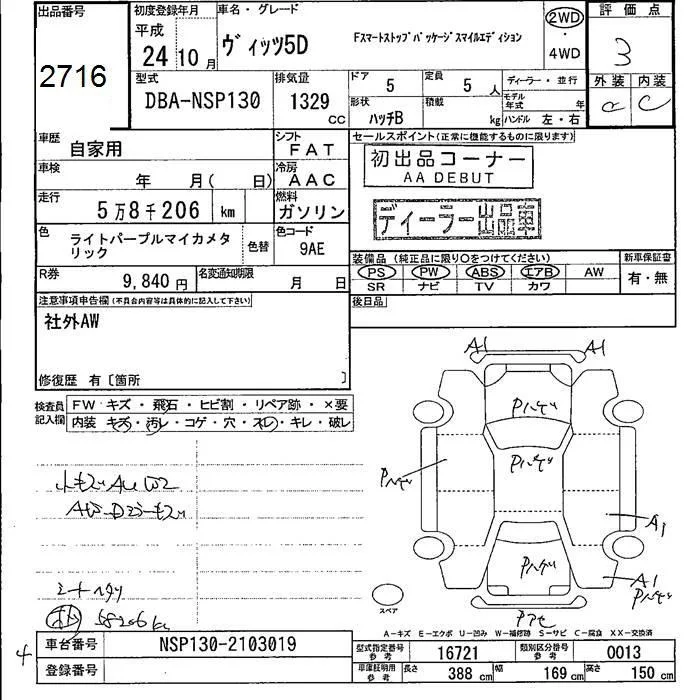 出品番号
2716
初度登録年月
平成
24 10月
車名・グレード
ヴィッツ5D
Fスマートストップパッケージスマイルエディション
2WD
・
4WD
評価点
3
型式
DBA-NSP130
排気量
1329
CC
ドア
5
定員
5 人
ディーラー・並行
モデル年式 年
形状
ハッチB
積載
kg
ハンドル 左・右
外装 内装
C
車歴
自家用
シフト
FAT
車検
年 月( 日)
冷房
AAC
走行
5万8千206 km
燃料
ガソリン
色
ライトパープルマイカメタリック
色替
色コード
9AE
R券
9,840円
名変通知期限
月 日
セールスポイント(正常に機能するものに限ります)
初出品コーナー
AA DEBUT
ディーラー出品車
装備品 (純正品に限り○をつけてください)
PS PW ABS エアB AW
SR ナビ TV カワ
新車保証書
有・無
後日品
注意事項申告欄(不具合内容等は具体的に記入して下さい)
社外AW
修復歴 有〔箇所 〕
検査員記入欄
FW キズ・飛石・ヒビ割・リペア跡・×要
内装 キズ・汚レ・コゲ・穴・スレ・キレ・破レ
シートヘタリ
58206 km
A1 A1
Pハゲ
Pハゲ
Pハゲ
A1
Pハゲ
A1
Pハゲ
スペア
A-キズ E-エクボ U-凹み W-補修跡 S-サビ C-腐食 XX-交換済
4
車台番号
NSP130-2103019
登録番号
型式指定番号 参考
16721
類別区分番号 参考
0013
車庫証明用 参考
長さ 388 cm
幅 169 cm
高さ 150 cm